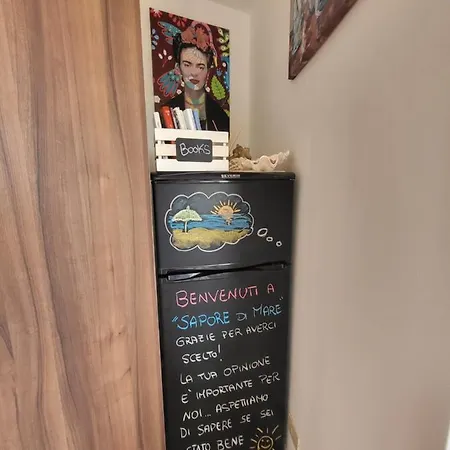 BOOKS
SEVERIN
BENVENUTI A
"SAPORE DI MARE"
GRAZIE PER AVERCI
SCELTO!
LA TUA OPINIONE
E' IMPORTANTE PER
NOI... ASPETTIAMO
DI SAPERE SE SEI
STATO BENE